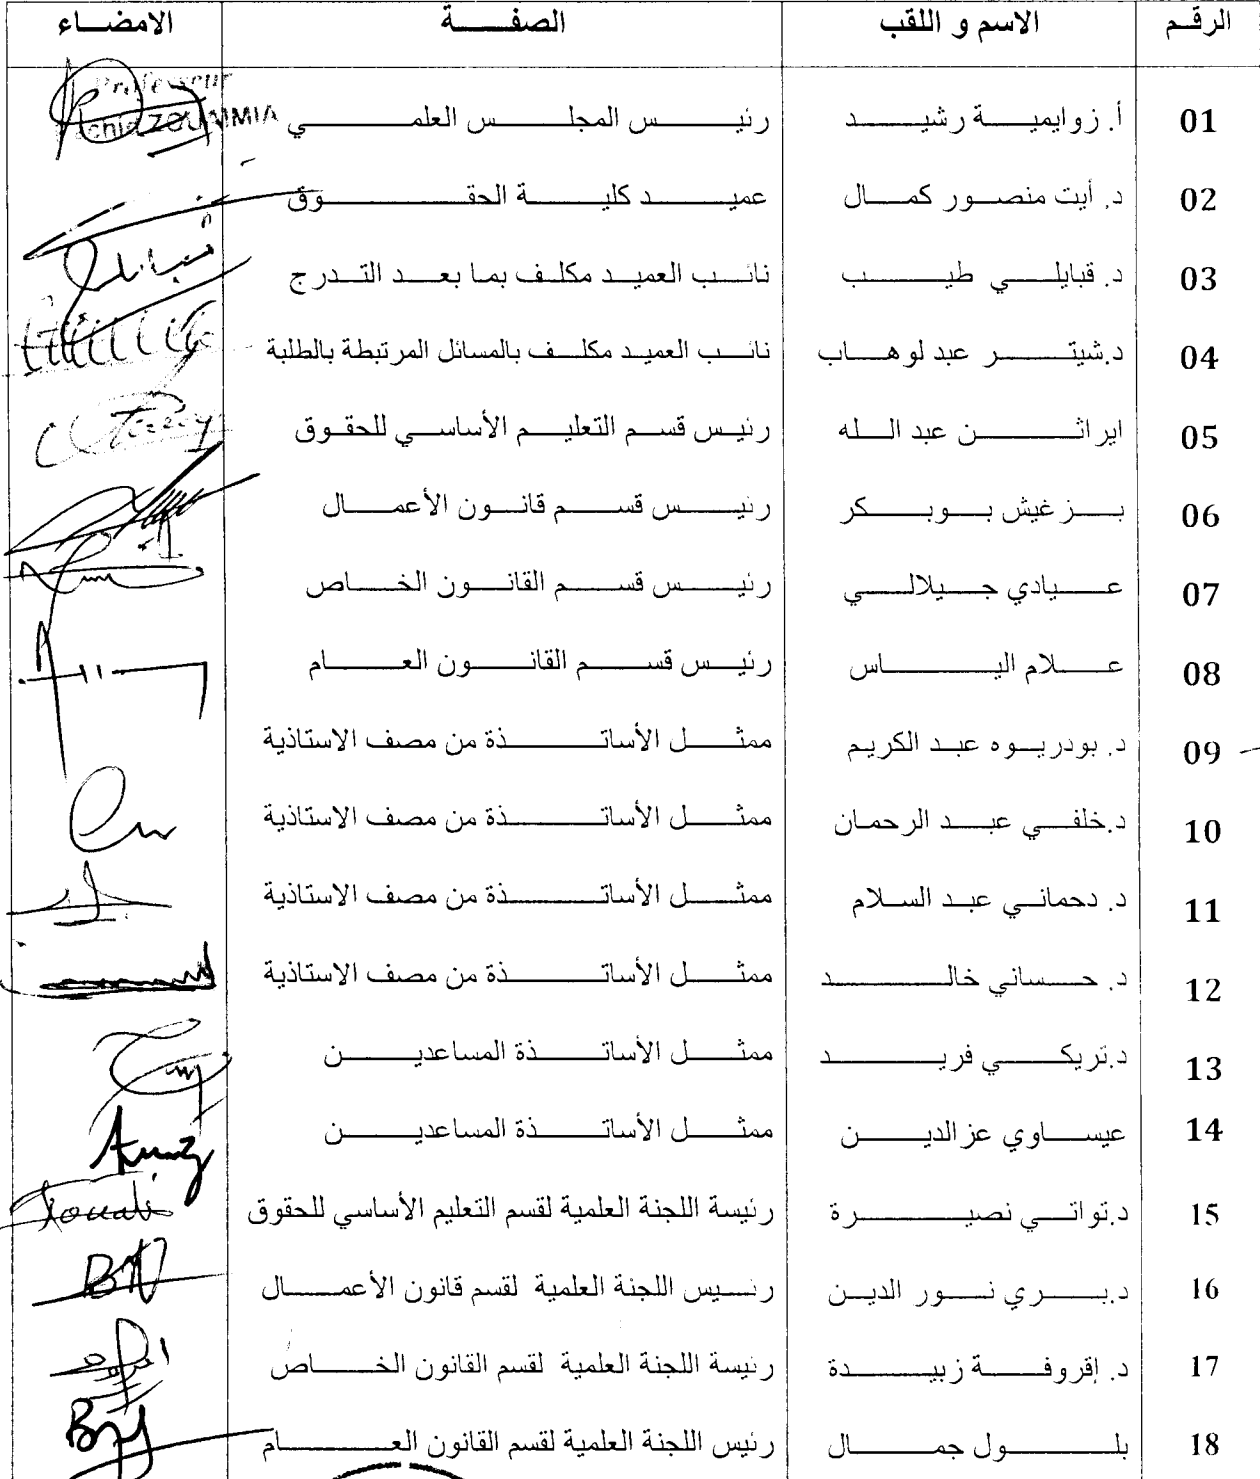 الرقم الاسم و اللقب الصفة الامضاء
01 أ. زوايمية رشيد رئيس المجلس العلمي
Professeur
ZOUAIMIA
02 د. أيت منصور كمال عميد كلية الحقوق
03 د. قبايلي طيب نائب العميد مكلف بما بعد التدرج
04 د.شيتر عبد لوهاب نائب العميد مكلف بالمسائل المرتبطة بالطلبة
05 ايراثن عبد الله رئيس قسم التعليم الأساسي للحقوق
06 بزغيش بوبكر رئيس قسم قانون الأعمال
07 عيادي جيلالي رئيس قسم القانون الخاص
08 علام الياس رئيس قسم القانون العام
09 د. بودريوه عبد الكريم ممثل الأساتذة من مصف الاستاذية
10 د.خلفي عبد الرحمان ممثل الأساتذة من مصف الاستاذية
11 د. دحماني عبد السلام ممثل الأساتذة من مصف الاستاذية
12 د. حساني خالد ممثل الأساتذة من مصف الاستاذية
13 د.تريكي فريد ممثل الأساتذة المساعدين
14 عيساوي عز الدين ممثل الأساتذة المساعدين
15 د.تواتي نصيرة رئيسة اللجنة العلمية لقسم التعليم الأساسي للحقوق
16 د.بري نور الدين رئيس اللجنة العلمية لقسم قانون الأعمال
17 د. إقروفة زبيدة رئيسة اللجنة العلمية لقسم القانون الخاص
18 بلول جمال رئيس اللجنة العلمية لقسم القانون العام